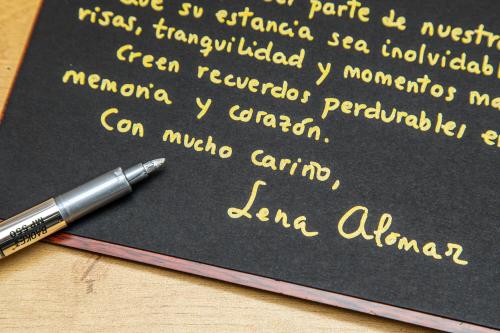 parte de nuestra
que su estancia sea inolvidable
risas, tranquilidad y momentos
Creen recuerdos perdurables en
memoria y corazón.
Con mucho cariño,
Lena Alomar